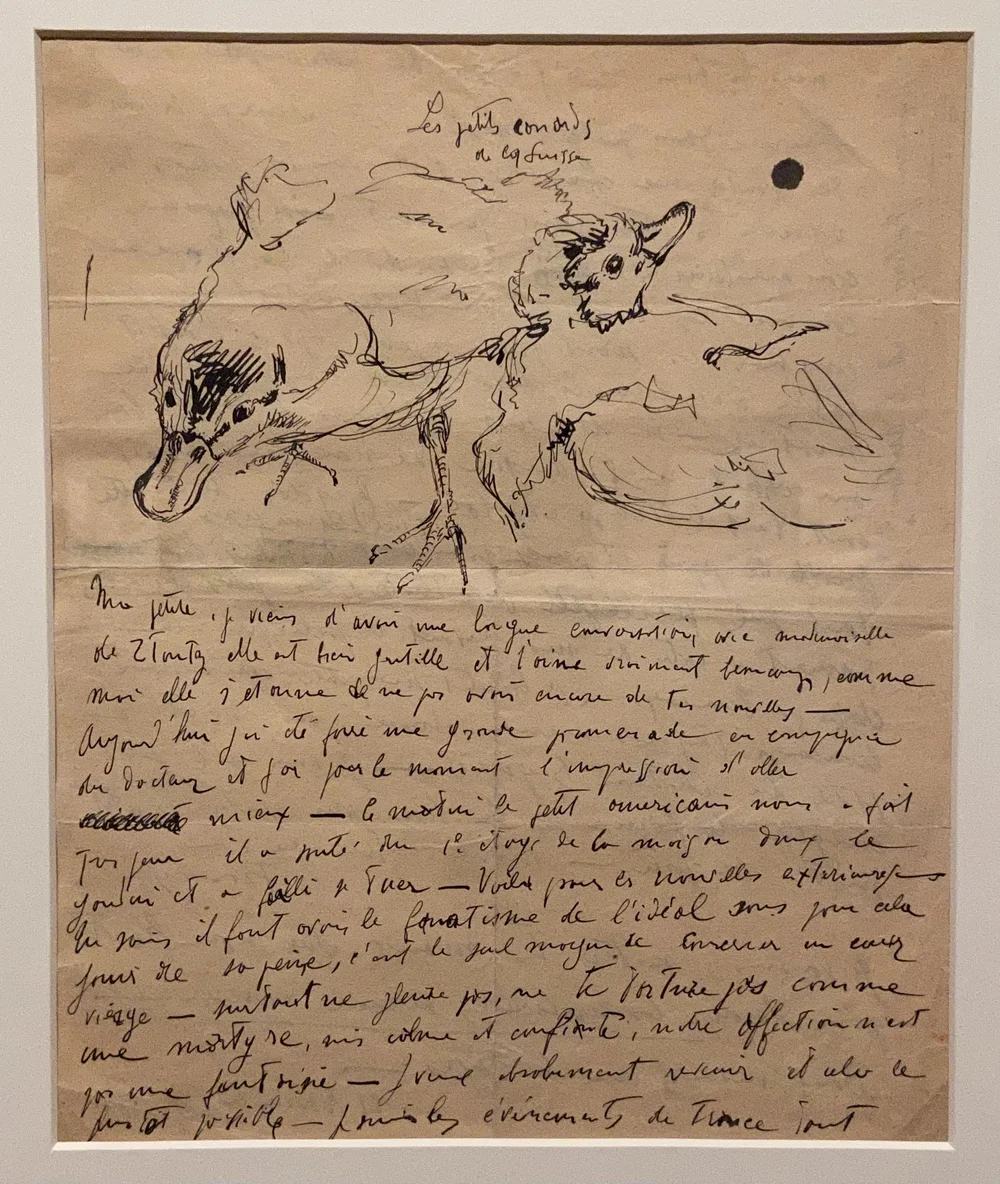 Les petits canards
de la Suisse
Ma petite, je viens d'avoir une longue conversation avec mademoiselle
de elle est bien gentille et t'aime vraiment beaucoup, comme
moi elle s'étonne de ne pas avoir encore de tes nouvelles —
Aujourd'hui j'ai été faire une grande promenade en compagnie
du docteur et j'ai pour le moment l'impression d'aller
mieux — le matin le petit americain nous a fait
peur il a sauté du 1er étage de la maison dans le
jardin et a failli se tuer — Voila pour les nouvelles exterieures
tu sais il faut avoir le fanatisme de l'idéal sans pour cela
jouir de sa peine, c'est le seul moyen de conserver un cœur
vierge — surtout ne pleure pas, ne te torture pas comme
une martyre, mais calme et confiante, notre affection n'est
pas une fantaisie — Je veux absolument revenir et cela le
plus tot possible — les événements de France sont